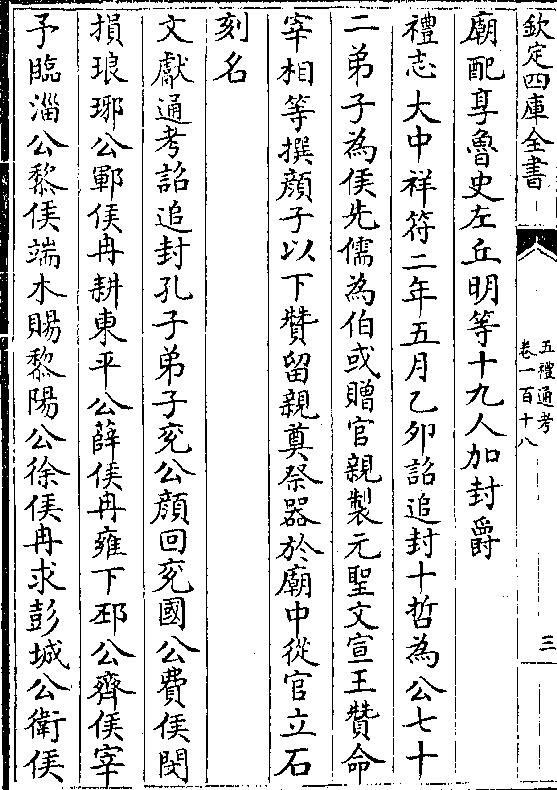 欽定四庫全書
五禮通考
卷一百十八
三
廟配享魯史左丘明等十九人加封爵
禮志大中祥符二年五月乙卯詔追封十哲為公七十
二弟子為侯先儒為伯或贈官親製元聖文宣王贊命
宰相等撰顔子以下贊留親奠祭器於廟中從官立石
刻名
文獻通考詔追封孔子弟子兖公顔回兖國公費侯閔
損琅琊公鄆侯冉耕東平公薛侯冉雍下邳公齊侯宰
予臨淄公黎侯端木賜黎陽公徐侯冉求彭城公衛侯